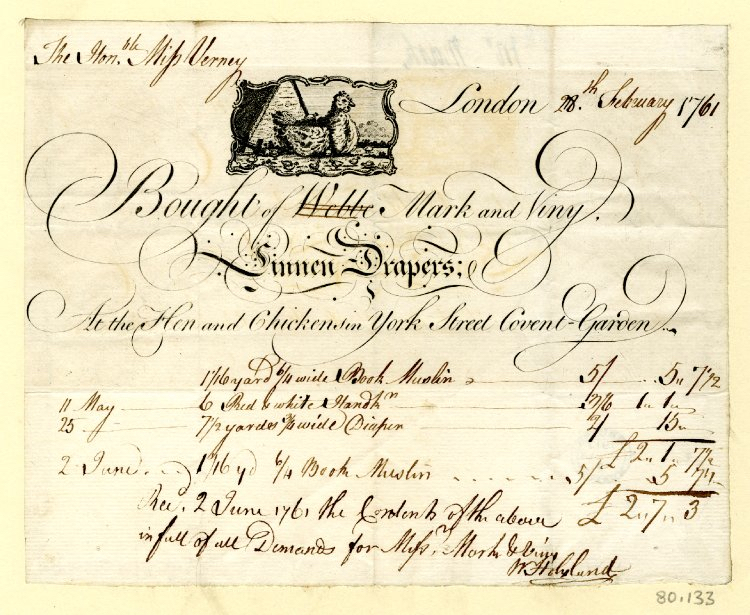 The Hon.ble Miss Verney
London 28.th February 1761
Bought of Webbe Mark and Viny,
Linnen Drapers;
At the Hen and Chickens in York Street Covent-Garden
1 1/16 yard 6/4 wide Book Muslin 5/ 5 „ 7 1/2
11 May 6 Red & white Handk.n 3/6 1 „ 1 „
25 7 1/2 yardes wide Diaper 2/ 15 „
£ 2 „ 1 „ 7 1/2
2 June 1 1/16 yd 6/4 Book Muslin 5/ 5 7 1/2
£ 2 „ 7 „ 3
Rec.d 2 June 1761 the Contents of the above
in full of all Demands for Mess.rs Mark & Viny
80.133